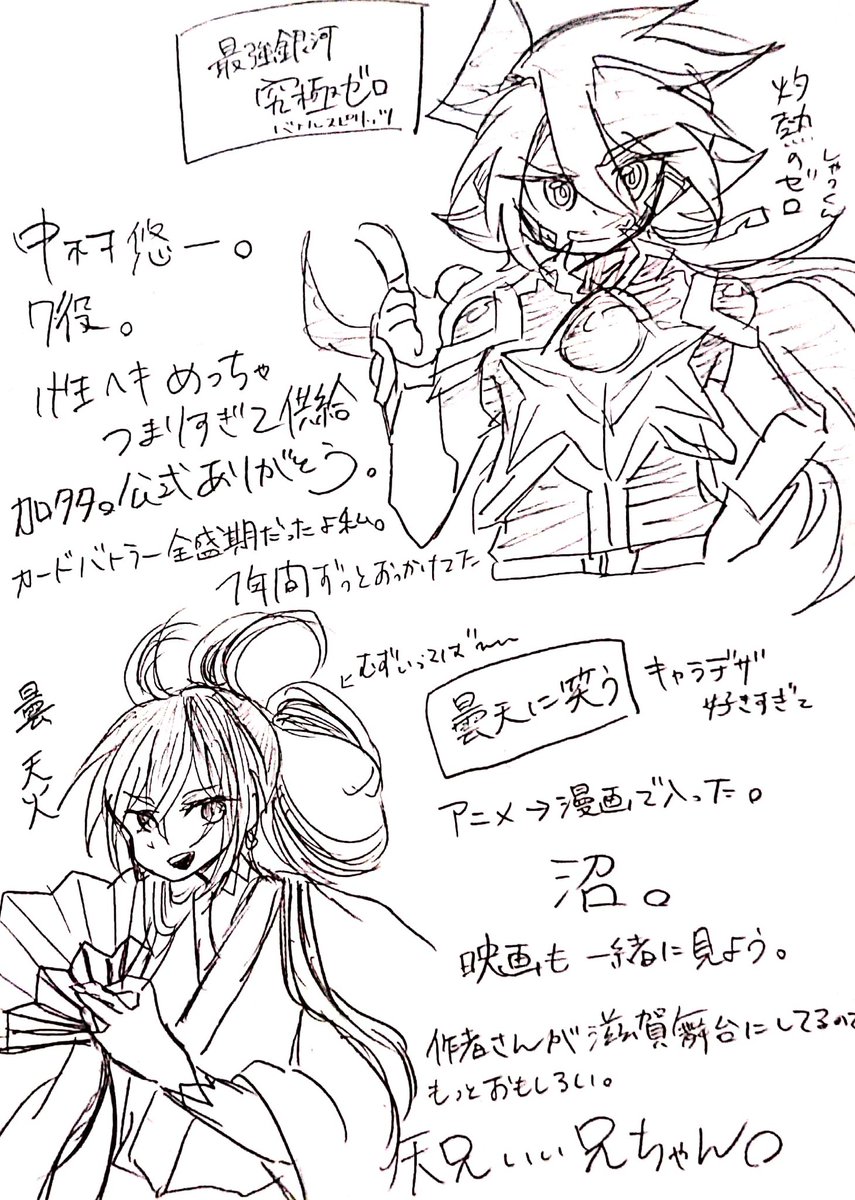 最強銀河
究極ゼロ
バトルスピリッツ
灼熱のゼロ
しゃっくん
中村悠一。
7役。
性ヘキめっちゃ
つまりすぎて供給
加タタ。公式ありがとう。
カードバトラー全盛期だったよ私。
1年間ずっとおっかけてた
むずいってば〜
曇天火
曇天に笑う
キャラデザ
好きすぎて
アニメ→漫画で入った。
沼。
映画も一緒に見よう。
作者さんが滋賀舞台にしてるので
もっとおもしろい。
天兄いい兄ちゃん。